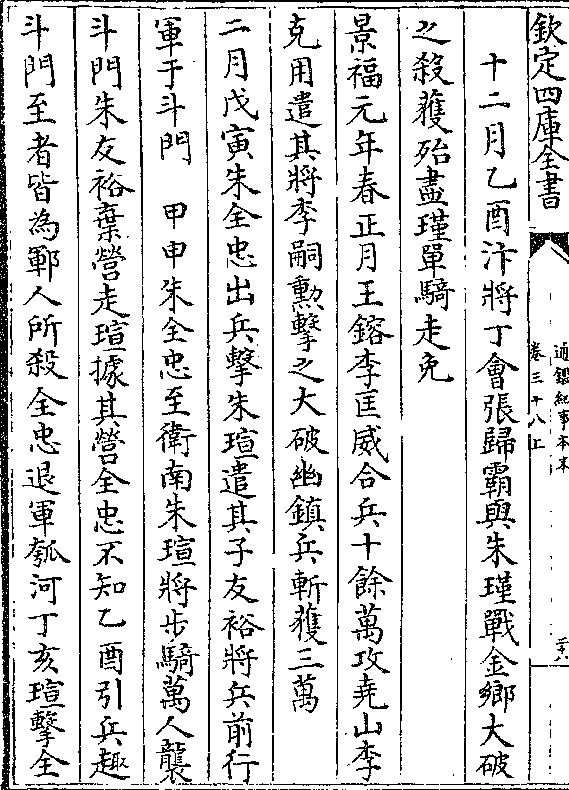 欽定四庫全書
通鑑紀事本末
卷三十八上
十二月乙酉汴將丁會張歸霸與朱瑾戰金鄉大破
之殺獲殆盡瑾單騎走免
景福元年春正月王鎔李匡威合兵十餘萬攻堯山李
克用遣其將李嗣勲擊之大破幽鎮兵斬獲三萬
二月戊寅朱全忠出兵擊朱瑄遣其子友裕將兵前行
軍于斗門　甲申朱全忠至衛南朱瑄將步騎萬人襲
斗門朱友裕棄營走瑄據其營全忠不知乙酉引兵趣
斗門至者皆為鄆人所殺全忠退軍瓠河丁亥瑄擊全